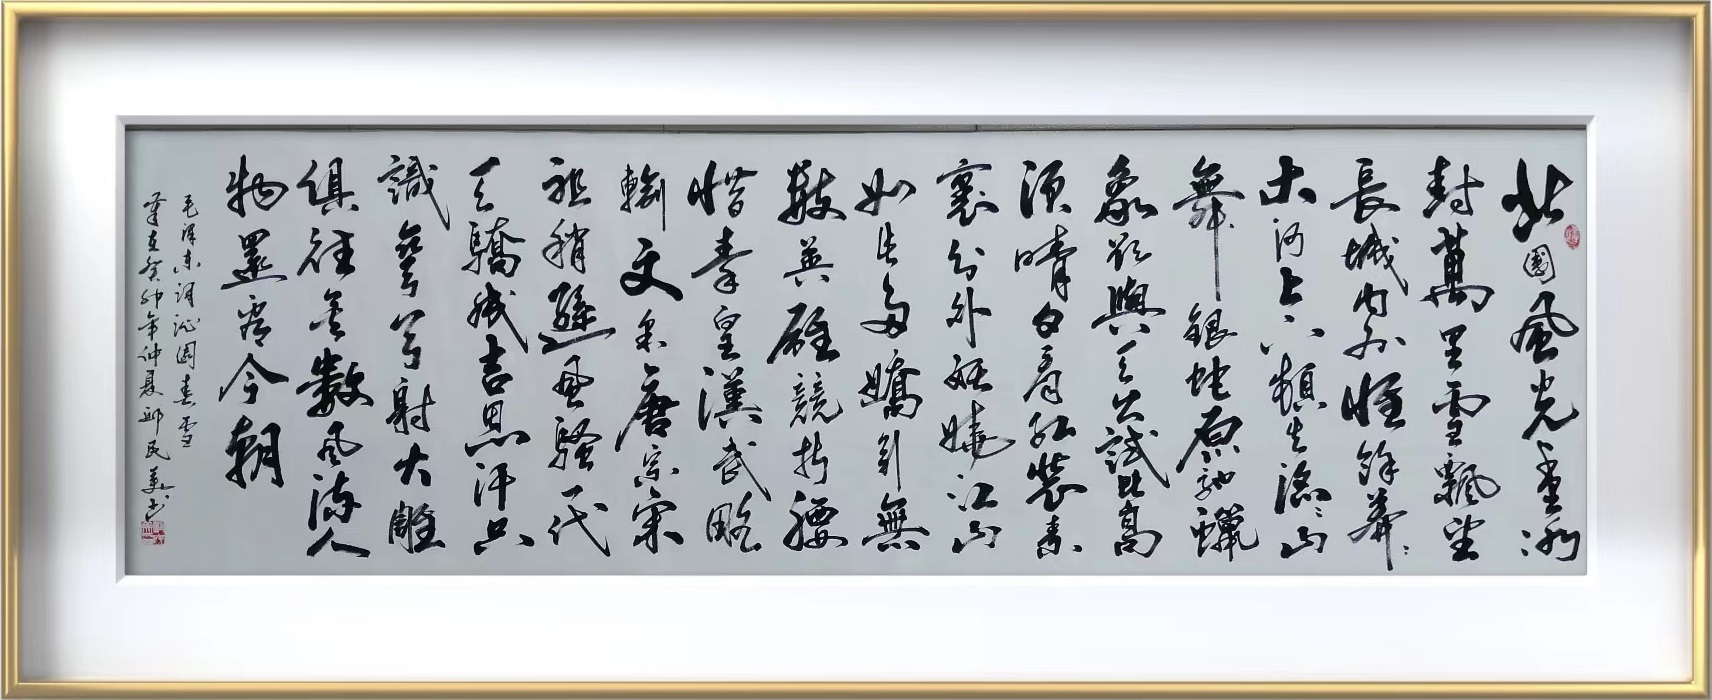 北國風光千里冰
封萬里雪飄望
長城內外惟餘莽〻
大河上下頓失滔〻山
舞銀蛇原馳蠟
象欲與天公試比高
須晴日看紅裝素
裹分外妖嬈江山
如此多嬌引無
數英雄競折腰
惜秦皇漢武略
輸文采唐宗宋
祖稍遜風騷一代
天驕成吉思汗只
識彎弓射大雕
俱往矣數風流人
物還看今朝
毛澤東詞沁園春雪
歲在癸卯年仲夏邱民書